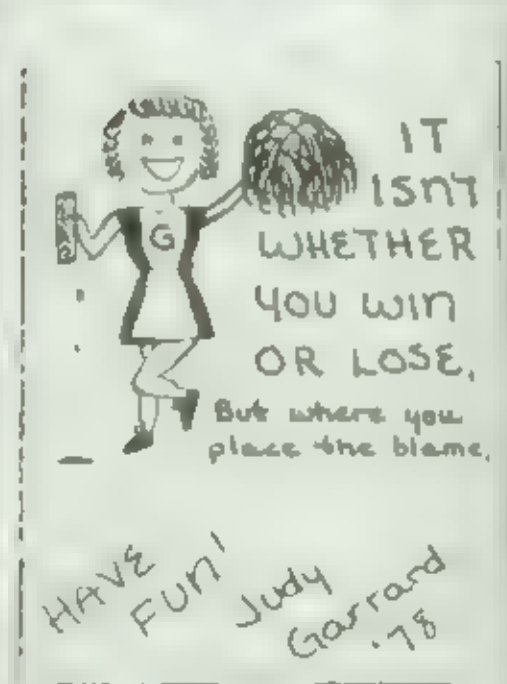 G
IT
ISn't
WHETHER
YOU WIn
OR LOSE,
But where you
place the blame.
HAVE
FUn!
Judy
Garrard
'78